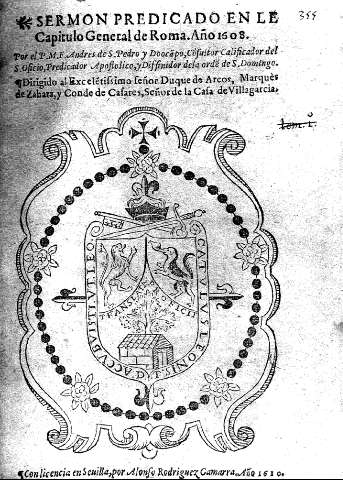 SERMON PREDICADO EN LE
Capitulo General de Roma. Año 1608.
Por el P.M.F. Andres de S. Pedro y Doocãpo, Cõsultor Calificador del
S. Oficio, Predicador Apostolico, y Diffinidor dela ordẽ de S. Domingo.
¶Dirigido al Excelẽtissimo señor Duque de Arcos, Marquès
de Zahara, y Conde de Casares, Señor de la Casa de Villagarcia.
355
tom. 1.
ACCVBAISTI VT LEO
CATVLVS LEONIS
IVDA
¶Con licencia en Seuilla, por Alonso Rodriguez Gamarra. Año 1610.